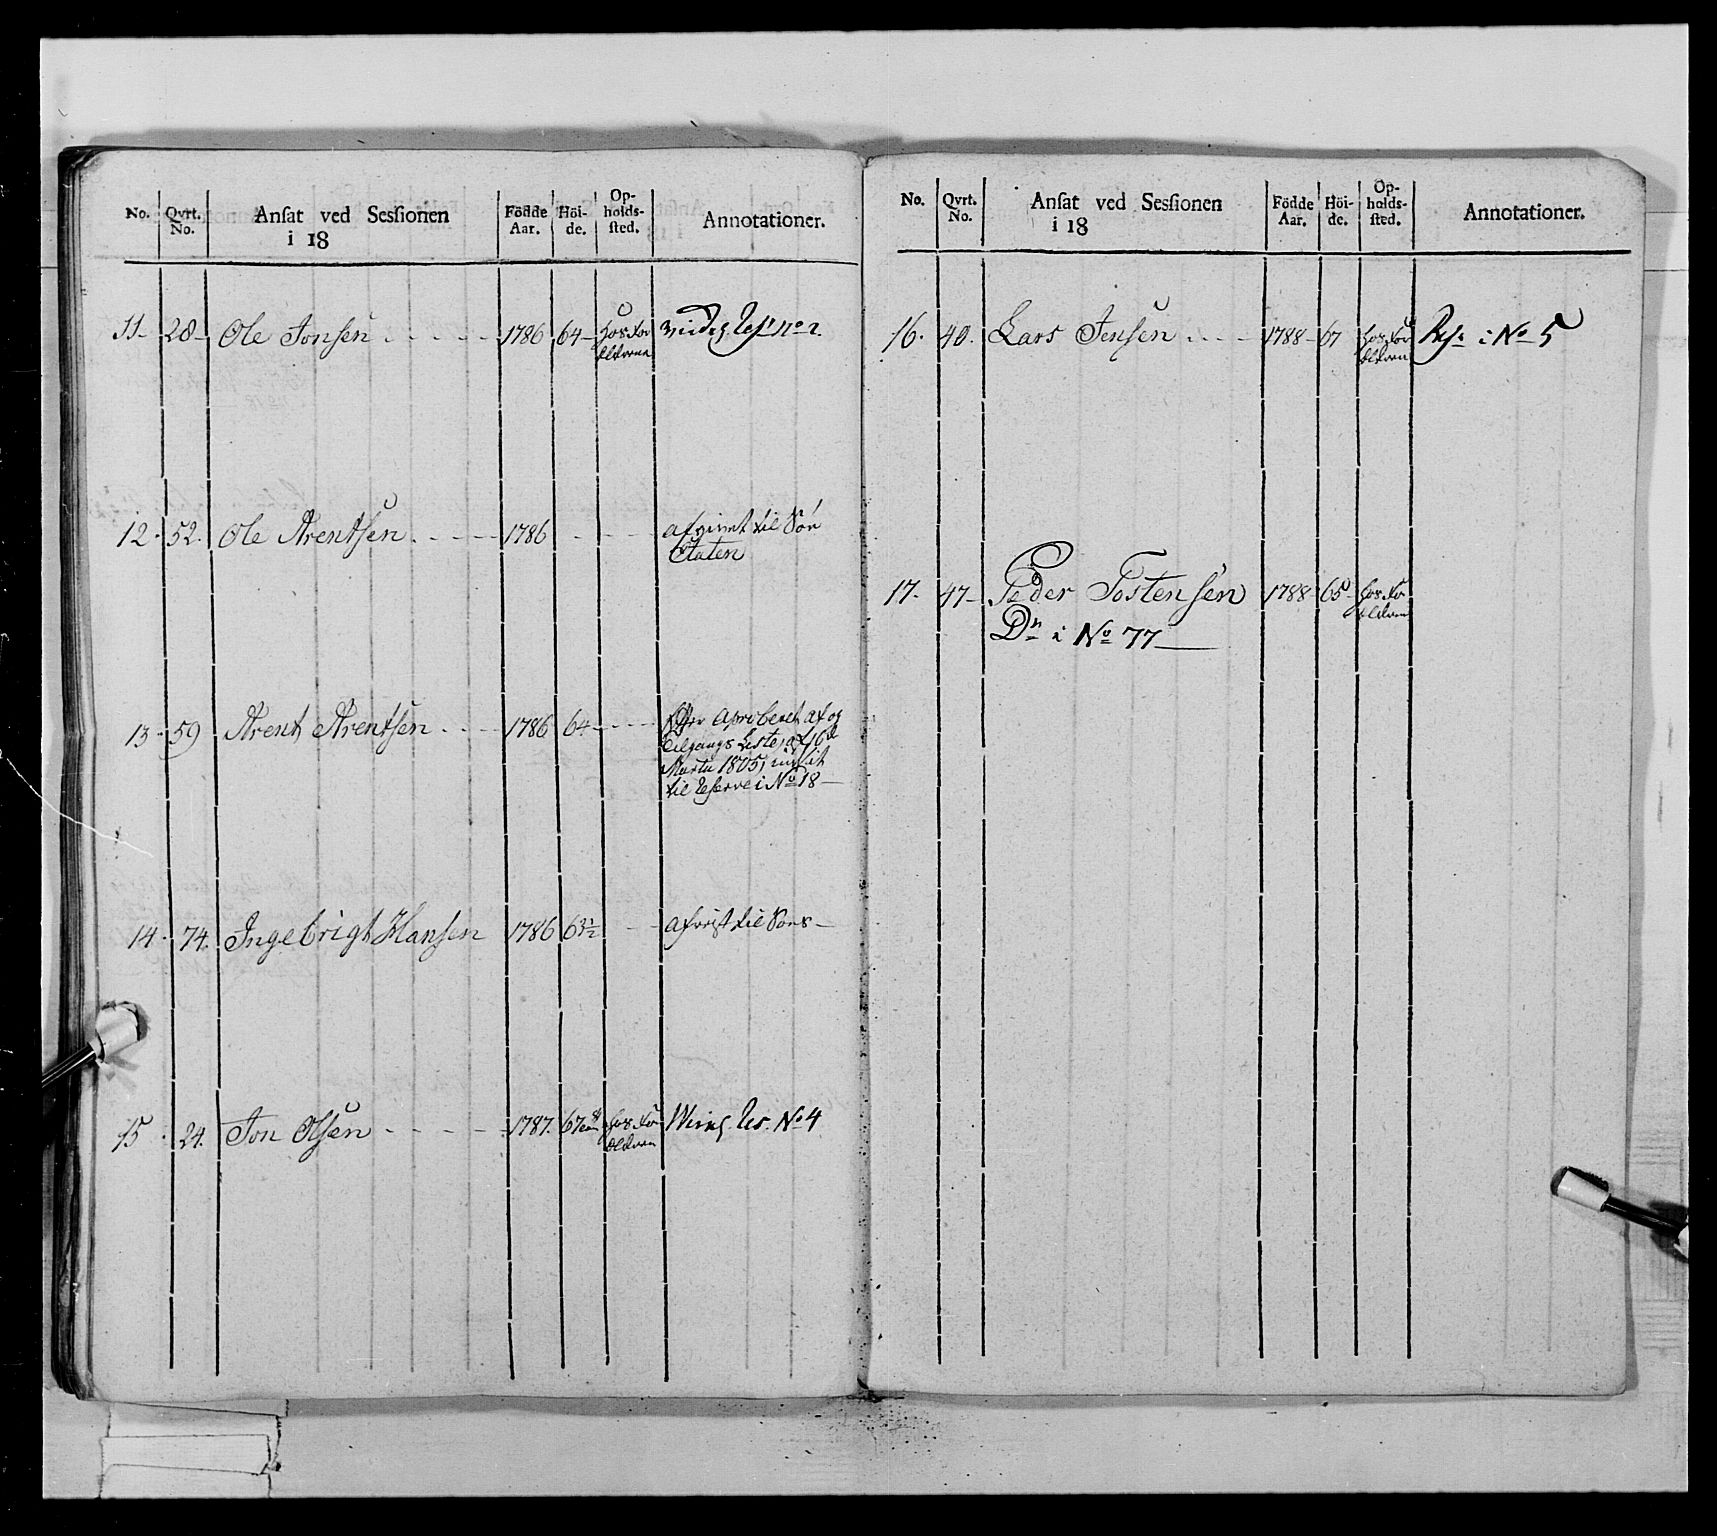 No. Qvrt. No. Ansat ved Sessionen i 18 Födde Aar. Höide. Opholdssted. Annotationer.
11 - 28 - Ole Jonsen 1786 64 - hos For
Eldrene
12 - 52. Ole Arentsen 1786 afgivet til Söe
Etaten
13 - 59 Arent Arentsen 1786 64 - Efter Aproberet af og
Tilgangs Liste, af 16de
Martii 1805, 
til Reserve i No 18 -
14 - 74. Ingebrigt Hansen 1786 63½ - til Söes -
15 - 24. Jon Olsen 1787. 67 hos For
Eldrene Res. No 4
No. Qvrt. No. Ansat ved Sessionen i 18 Födde Aar. Höide. Opholdssted. Annotationer.
16. 40. Lars Jensen 1788 - 67 hos For
Eldrene i No 5
17. 47 - Peder Tostensen 1788 65 - hos For
Eldrene
Dn i No 77